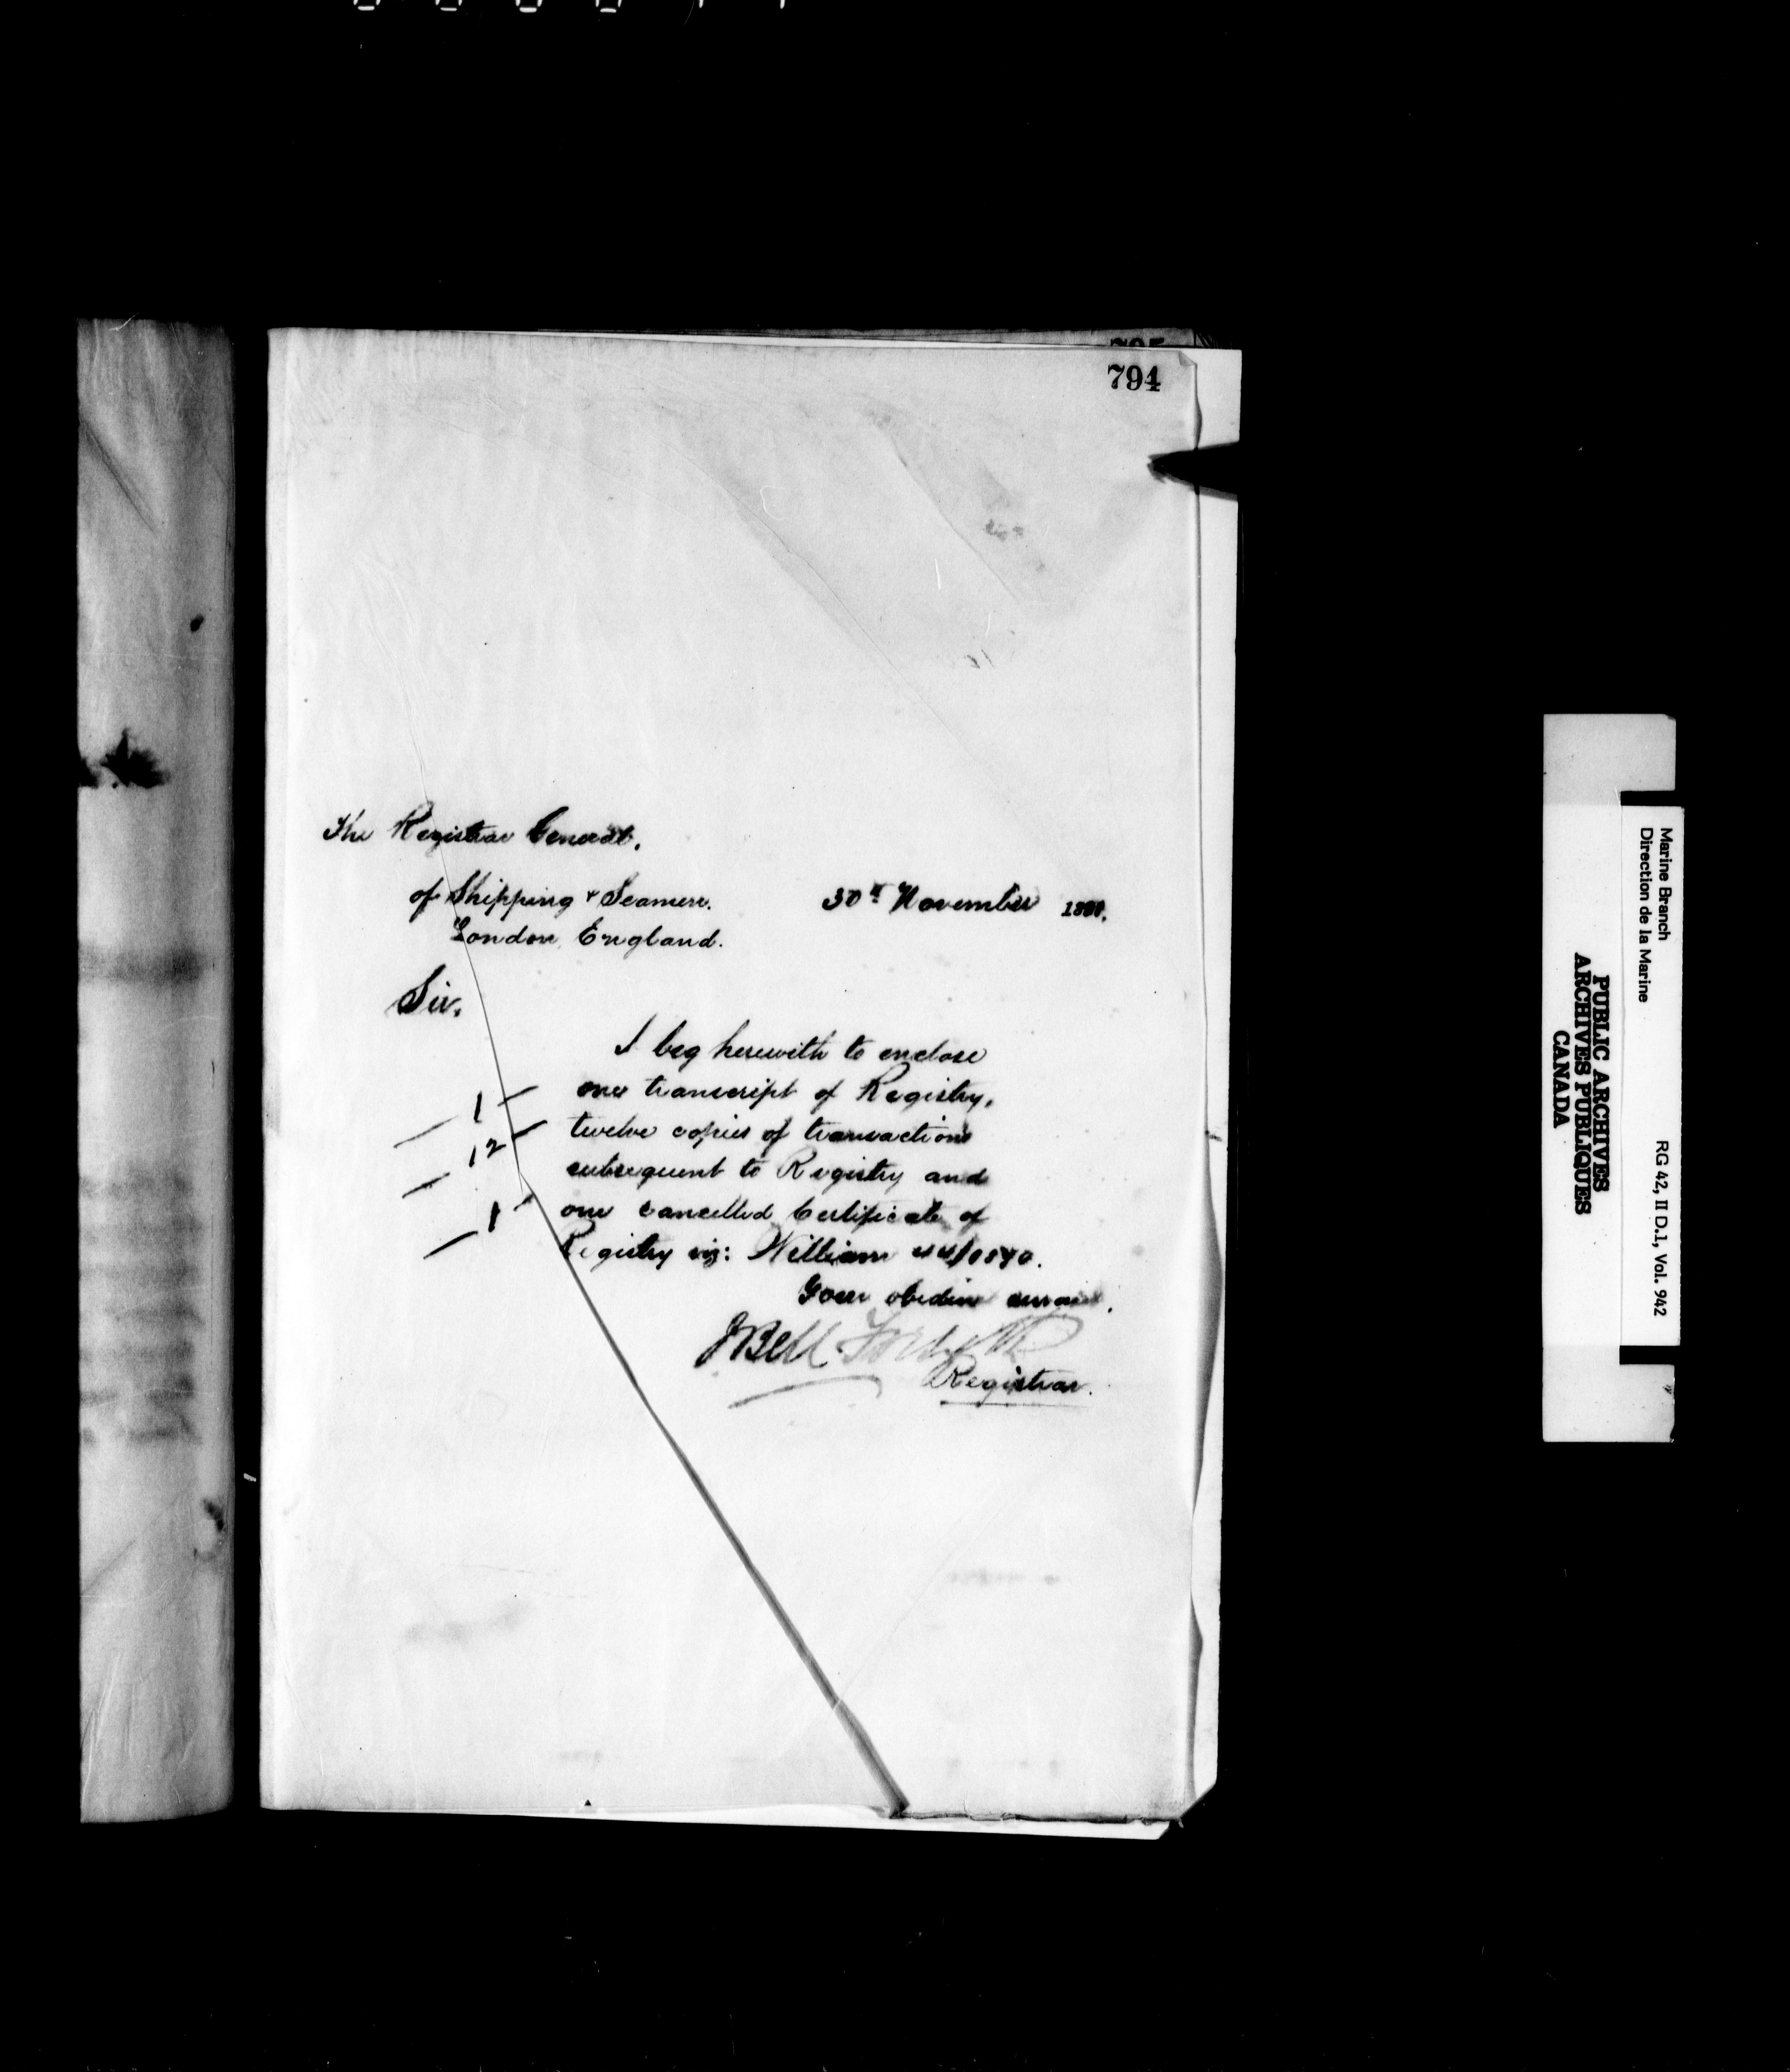 794
The Registrar General,
of Shipping & Seamen.
London, England.
30th November
Sir,
I beg herewith to enclose
1 one transcript of Registry,
12 twelve copies of transactions
subsequent to Registry and
1 one cancelled Certificate of
Registry viz: William
Your obedient servant,
J Bell Forsyth
Registrar.
Marine Branch
Direction de la Marine
RG 42, II D.1, Vol. 942
PUBLIC ARCHIVES
ARCHIVES PUBLIQUES
CANADA